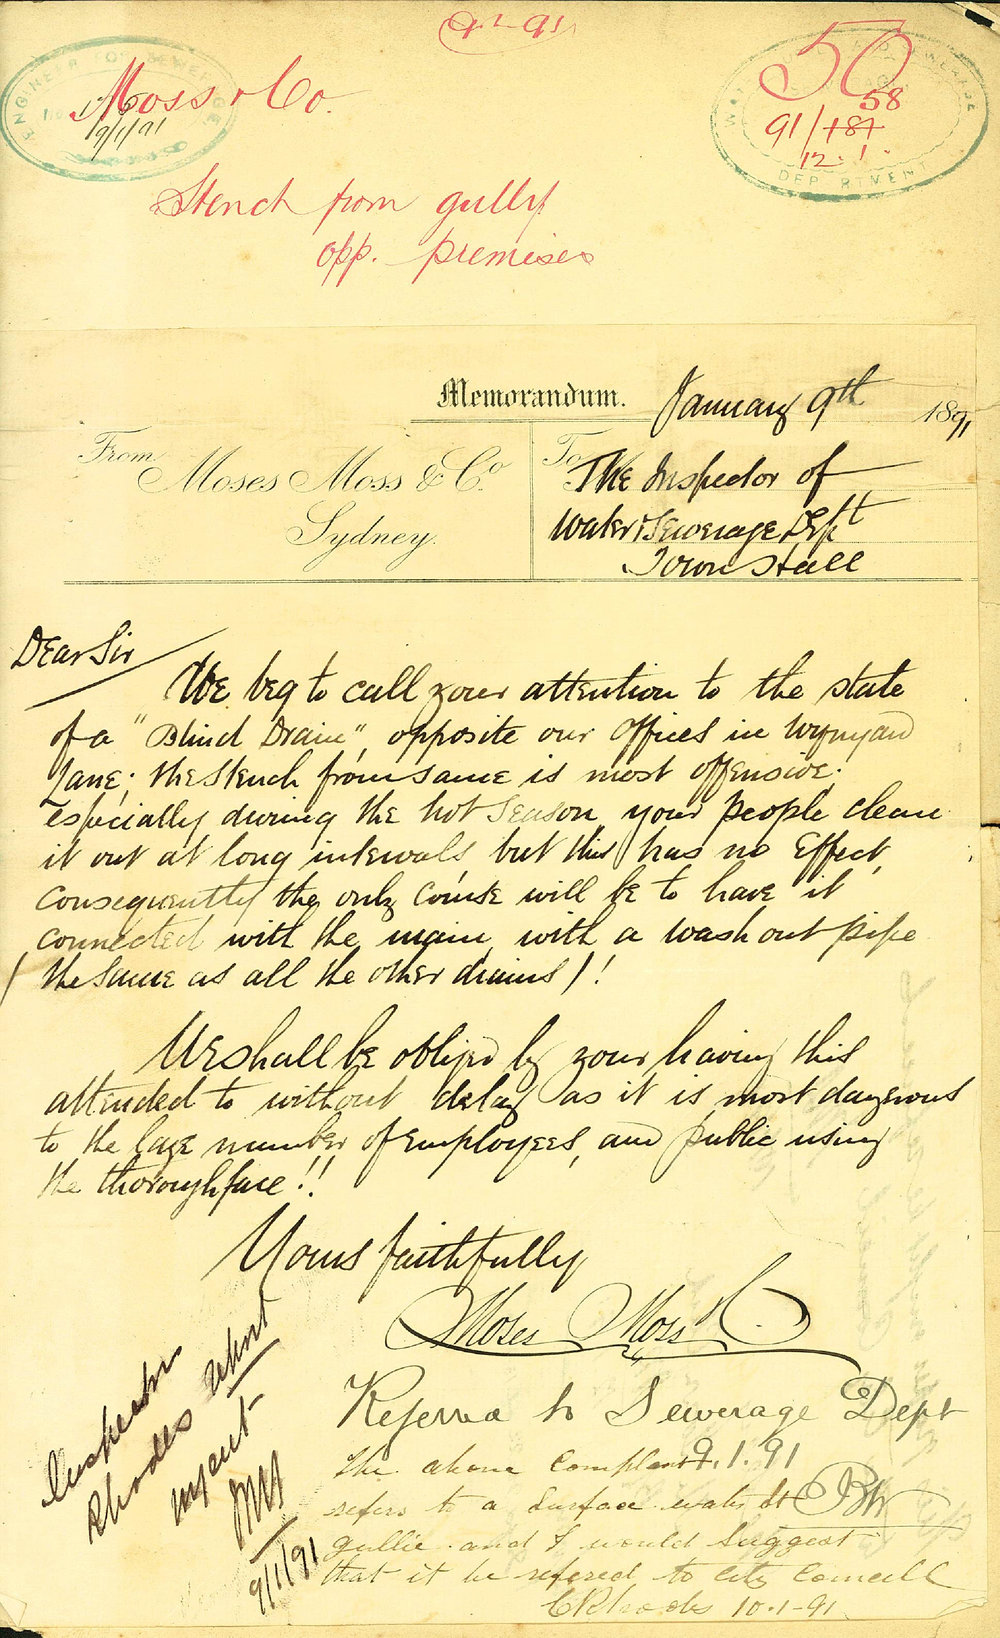 9-1-91
ENGINEER FOR SEWERAGE
Moss & Co.
9/1/91
50
58
91/187
12.1.
DEPARTMENT
Stench from gully
opp. premises
Memorandum.
January 9th 1891
From Moses Moss & Co.
Sydney.
To The Inspector of
Water & Sewerage Dept
Town Hall
Dear Sir
We beg to call your attention to the state
of a "Blind Drain", opposite our Offices in Wynyard
Lane; the stench from same is most offensive;
especially during the hot season your people clean
it out at long intervals but this has no Effect,
consequently the only course will be to have it
connected with the main, with a wash out pipe
(the same as all the other drains)!
We shall be obliged by your having this
attended to without delay as it is most dangerous
to the large number of Employees, and public using
the thoroughfare!!
Yours faithfully
Moses Moss & Co.
Inspector
Rhodes report
urgent
9/1/91
Referred to Sewerage Dept
9.1.91
The above Complant
refers to a Surface water St
gullie and I would Suggest
that it be refered to City Councell
C Rhodes 10-1-91